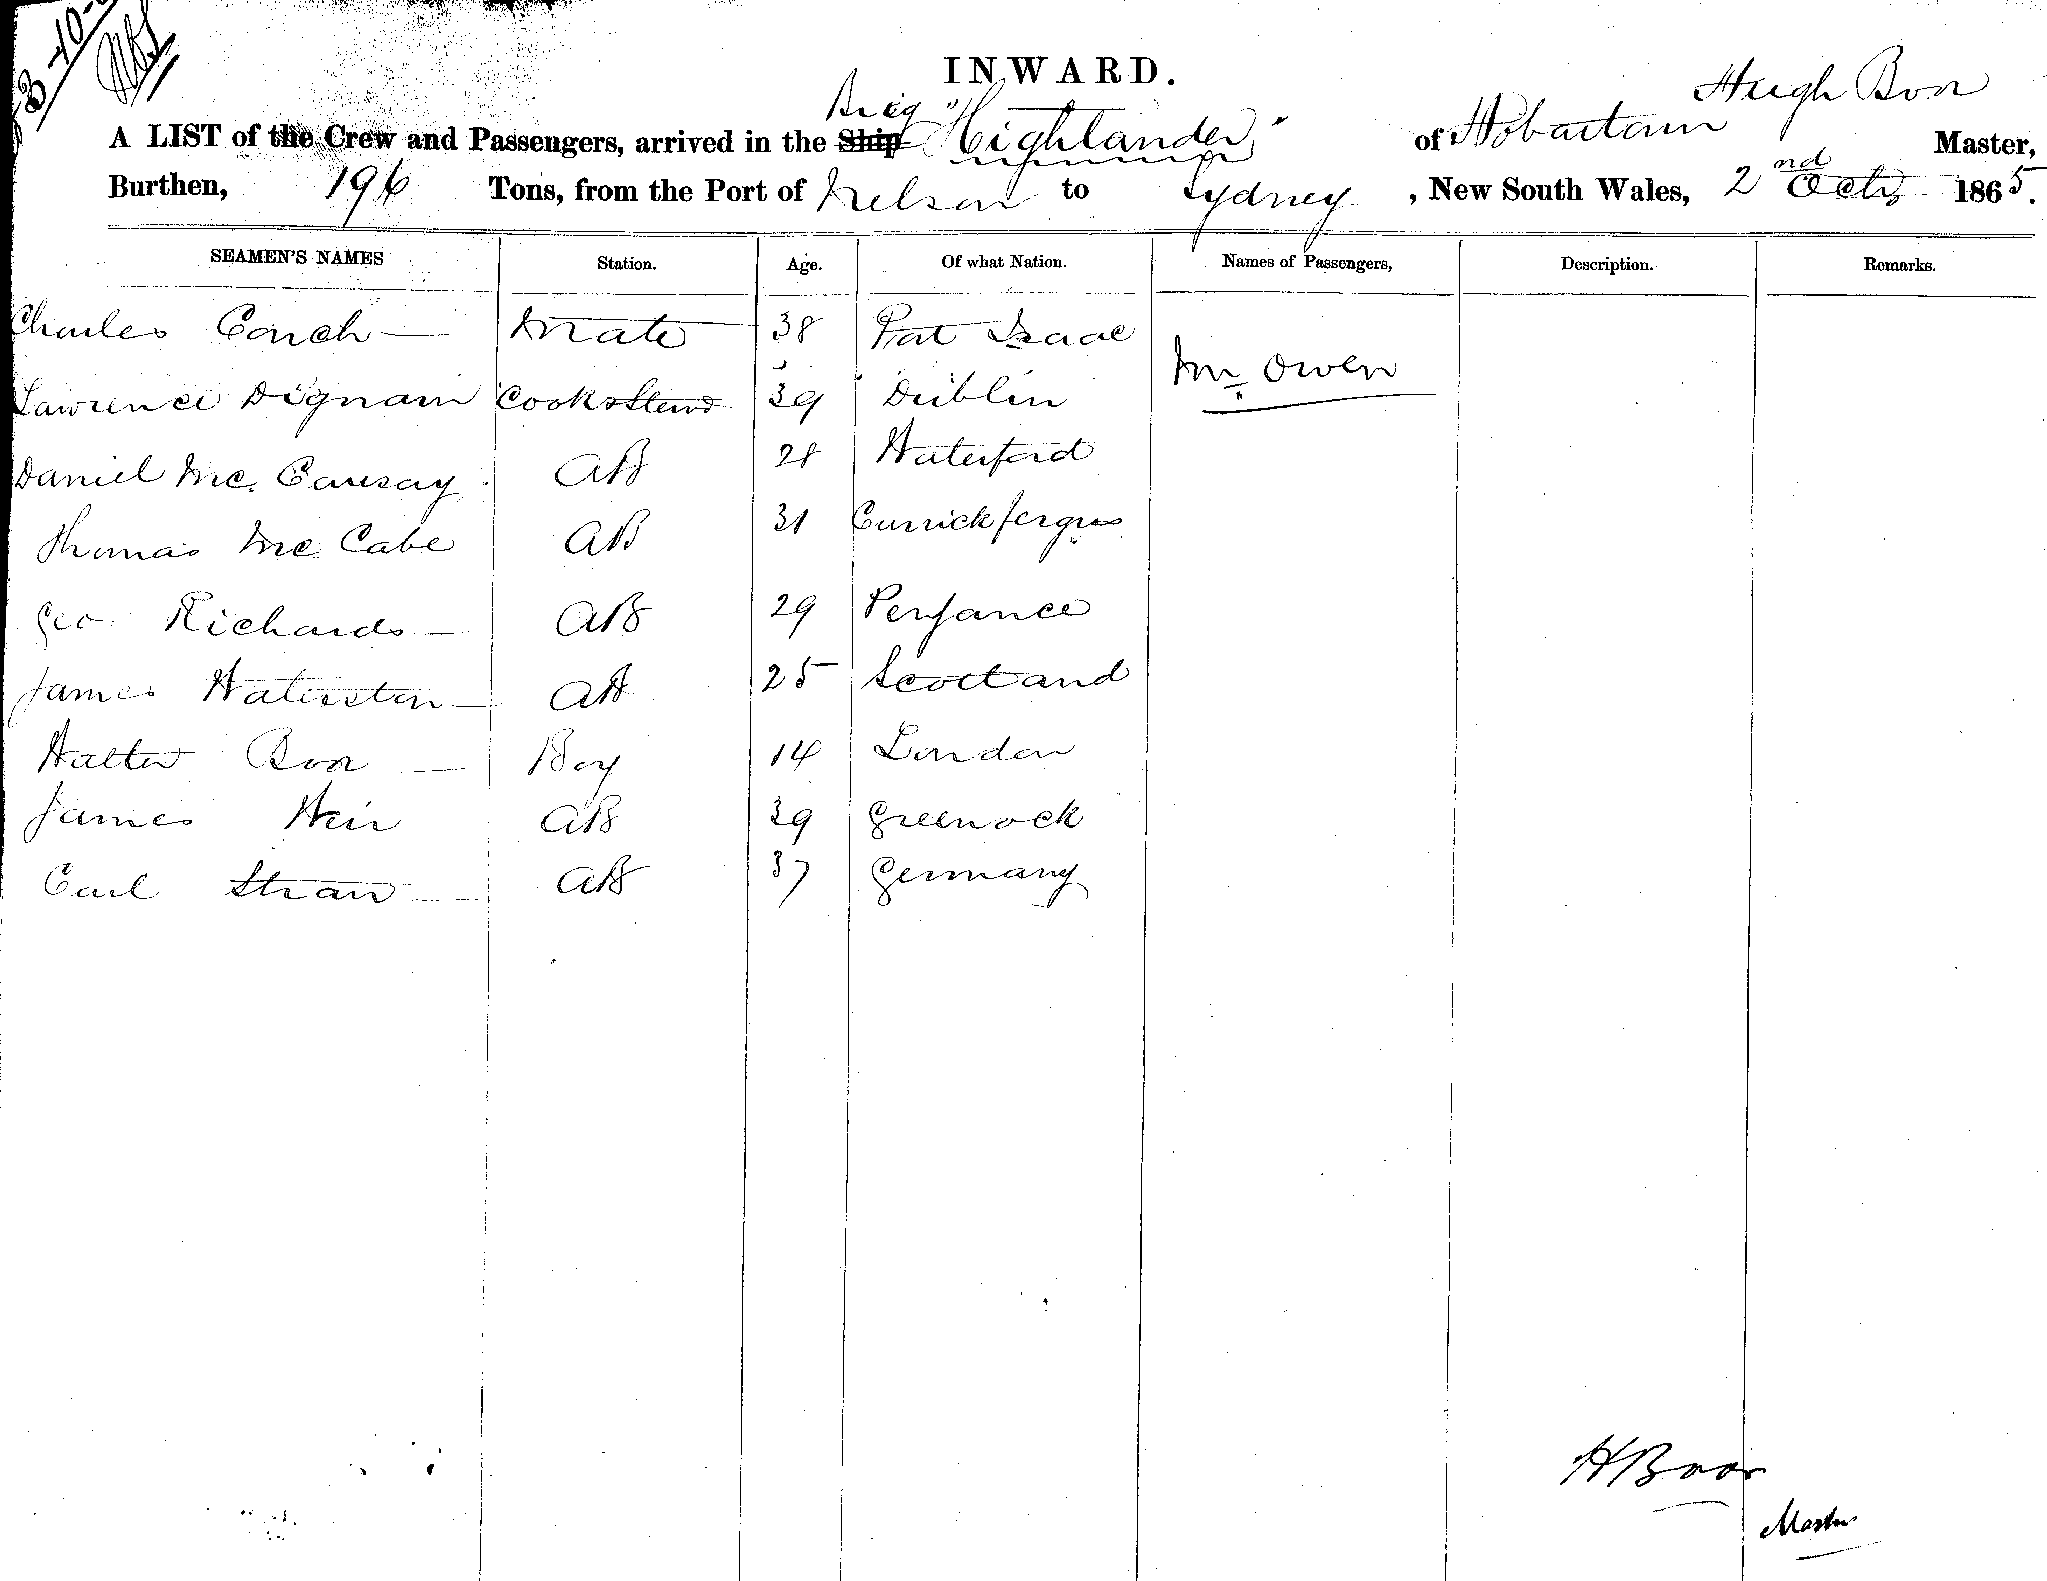 INWARD.
Brig Hugh Boor
A LIST of the Crew and Passengers, arrived in the Ship "Highlander" of Hobartown Master,
Burthen, 196 Tons, from the Port of Nelson to Sydney, New South Wales, 2nd Oct, 1865.
SEAMEN'S NAMES Station. Age. Of what Nation. Names of Passengers, Description. Remarks.
Charles Couch — Mate 38 Port Isaac
Mr Owen
Lawrence Dignam Cook & Stewd 39 Dublin
Daniel Mc. Causay AB 28 Waterford
Thomas Mc Cabe AB 31 Carrickfergus
Geo Richards — AB 29 Penzance
James Waterston — AB 25 Scotland
Walter Boor — Boy 14 London
James Weir AB 39 Greenock
Carl Straw — AB 37 Germany
H Boor
Master